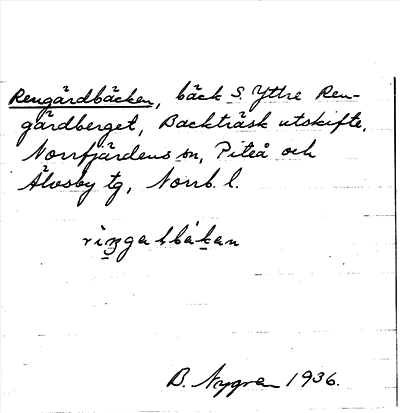 Rengårdbäcken, bäck S. Yttre Ren-
gårdberget, Backträsk utskifte,
Norrfjärdens sn, Piteå och
Älvsby tg, Norrb. l.
B. Nygren 1936.